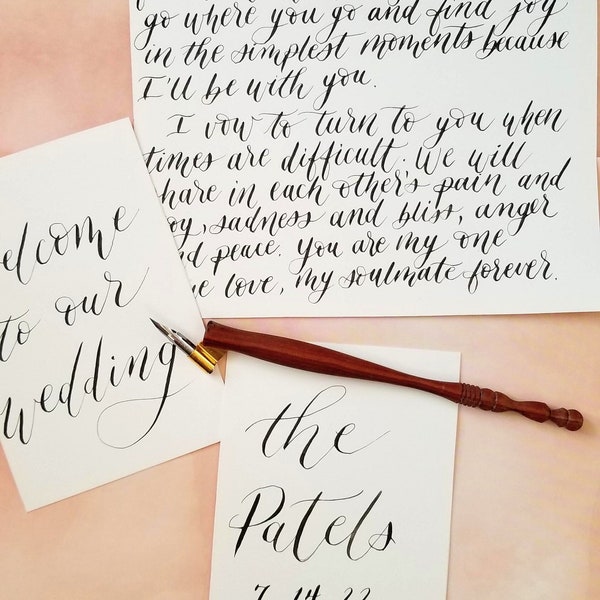 go where you go and find joy
in the simplest moments because
I'll be with you.
I vow to turn to you when
times are difficult. We will
share in each other's pain and
joy, sadness and bliss, anger
and peace. You are my one
love, my soulmate forever.
elcome
to our
wedding
the
Patels
7.14.22